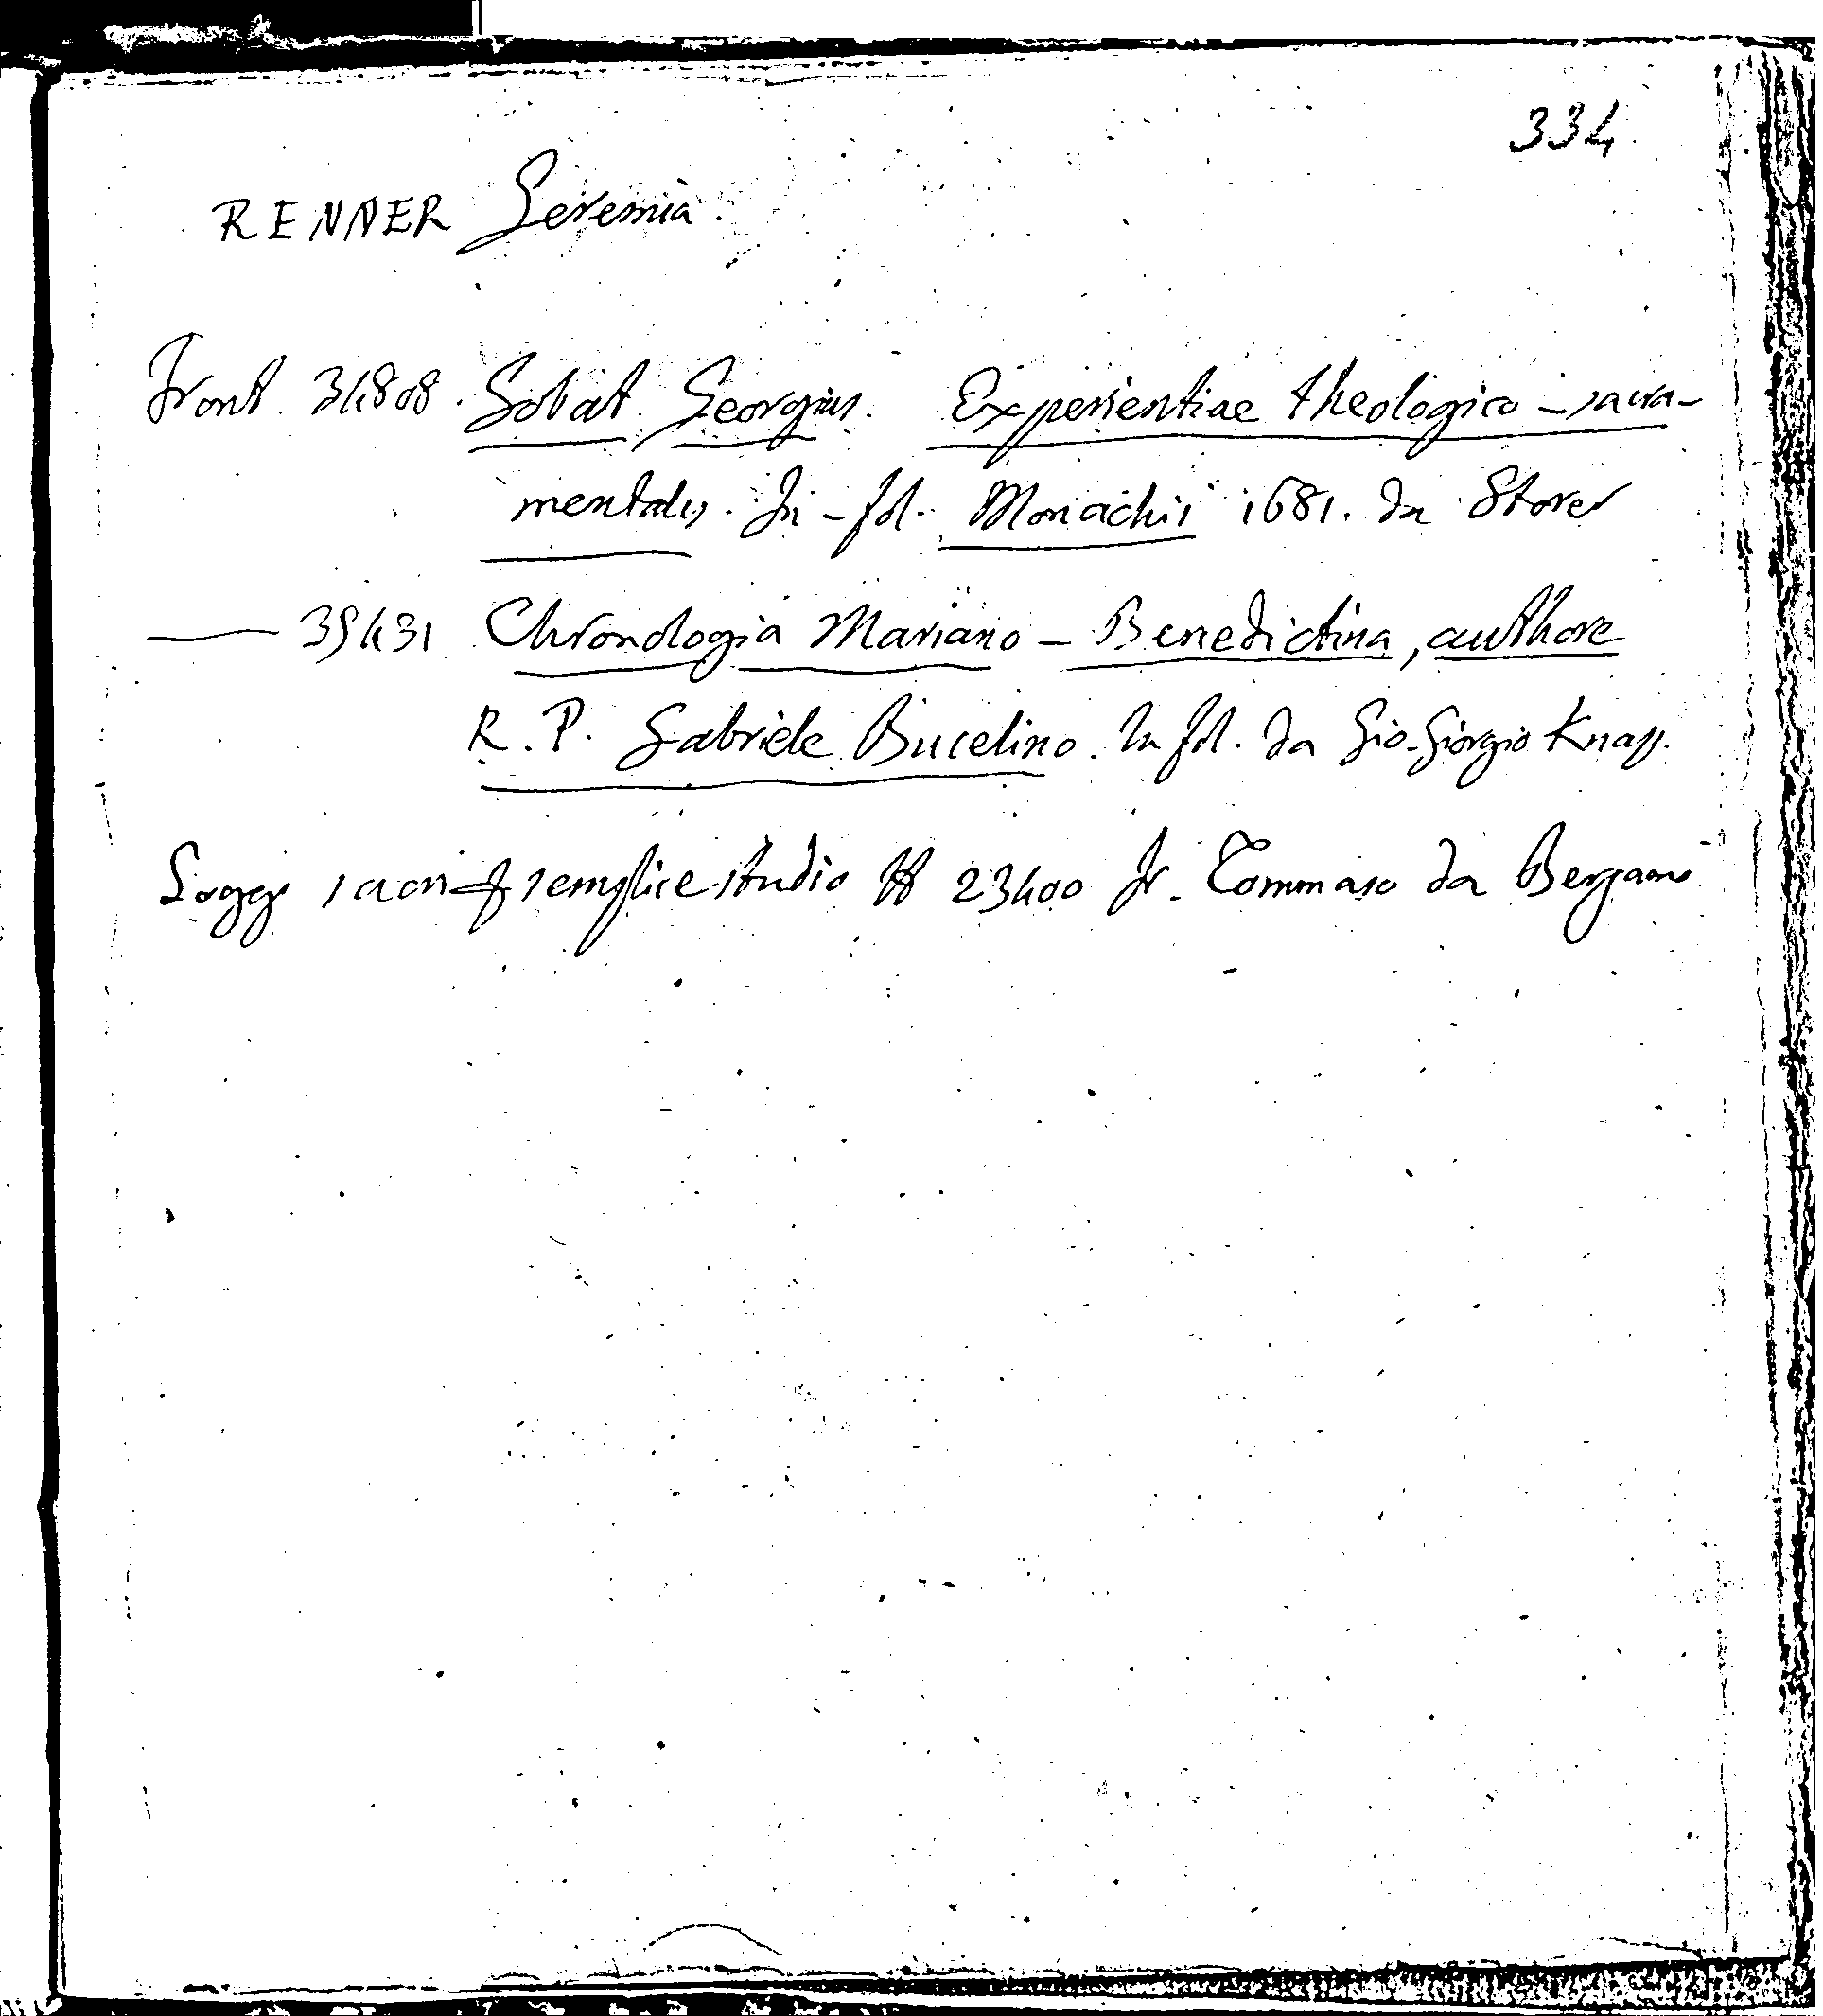 334
RENNER Geremia.
Front. 34808. Gobat Georgius. Experientiae theologico-sacra-
mentales. In-fol. Monachii 1681. da Storer
— 35431 Chronologia Mariano-Benedictina, authore
R. P. Gabriele Bucelino. In fol. da Gio. Giorgio Knapp.
Sogg. sacri semplice studio 23400 fr. Tommaso da Bergamo